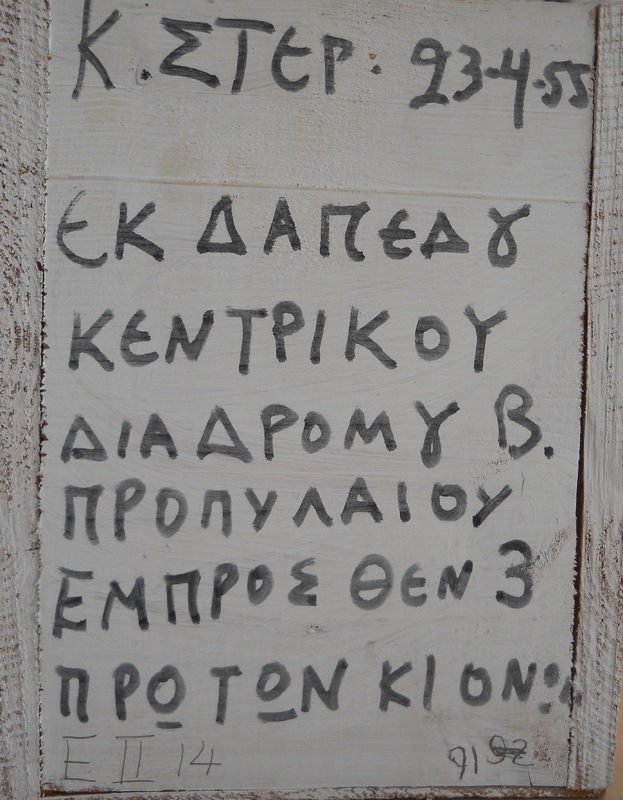 Κ. ΣΤΕΡ. 23-4-55
ΕΚ ΔΑΠΕΔȣ
ΚΕΝΤΡΙΚΟΥ
ΔΙΑΔΡΟΜȣ Β.
ΠΡΟΠΥΛΑΙΟΥ
ΕΜΠΡΟΣΘΕΝ 3
ΠΡΩΤΩΝ ΚΙΟΝΩ
Ε ΙΙ 14
91